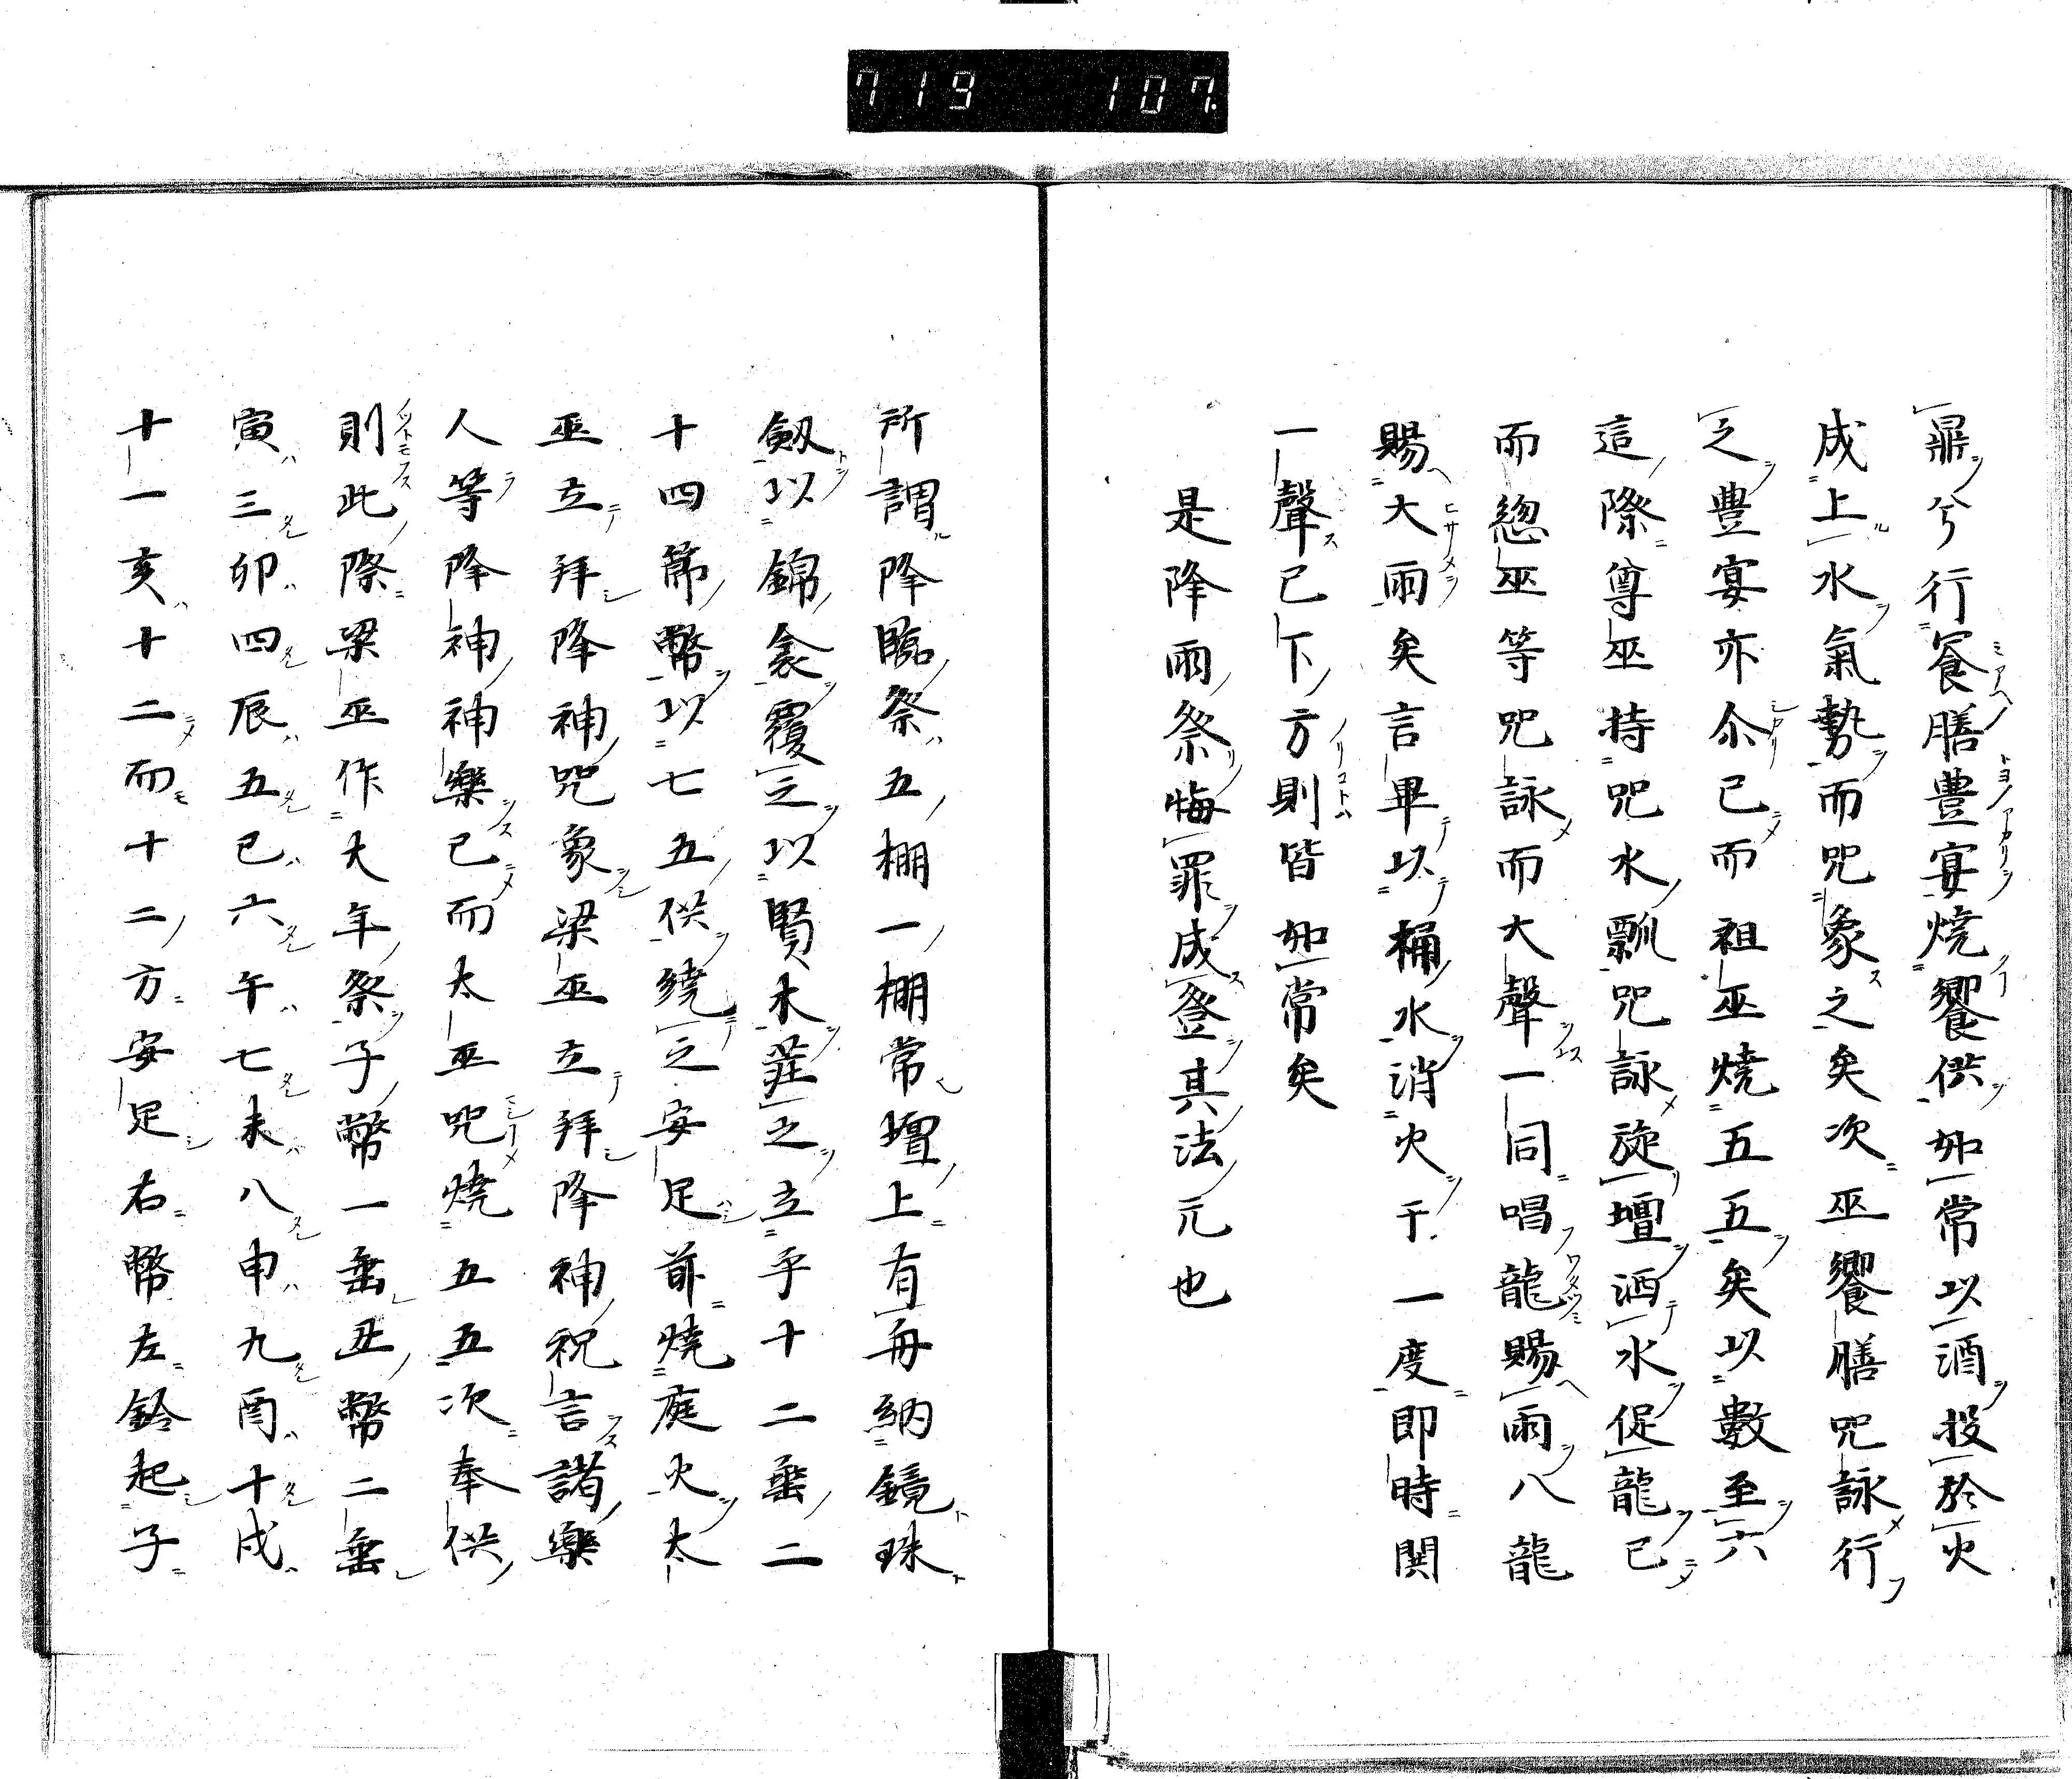 719 107.
鼎兮行餐膳豊宴焼饗供如常以酒投於火
成上水氣勢而咒象之矣次巫饗膳咒詠行
之豊宴亦尒已而祖巫焼五五矣以數至六
這際尊巫持咒水瓢咒詠旋壇洒水促龍已
而惣巫等咒詠而大聲一同唱龍賜雨八龍
賜大雨矣言畢以桶水消火于一度即時鬨
一聲已下方則皆如常矣
是降雨祭悔罪成登其法元也
所謂降臨祭五棚一棚常壇上有舟納鏡珠
劔以錦衾覆之以賢木莊之立乎十二垂二
十四節幣以七五供繞之安足前焼庭火太
巫立拜降神咒象梁巫立拜降神祝言諸樂
人等降神神樂已而太巫咒焼五五次奉供
則此際梁巫作大年祭子幣一垂丑幣二垂
寅三卯四辰五巳六午七未八申九酉十戌
十一亥十二而十二方安足右幣左鈴起子